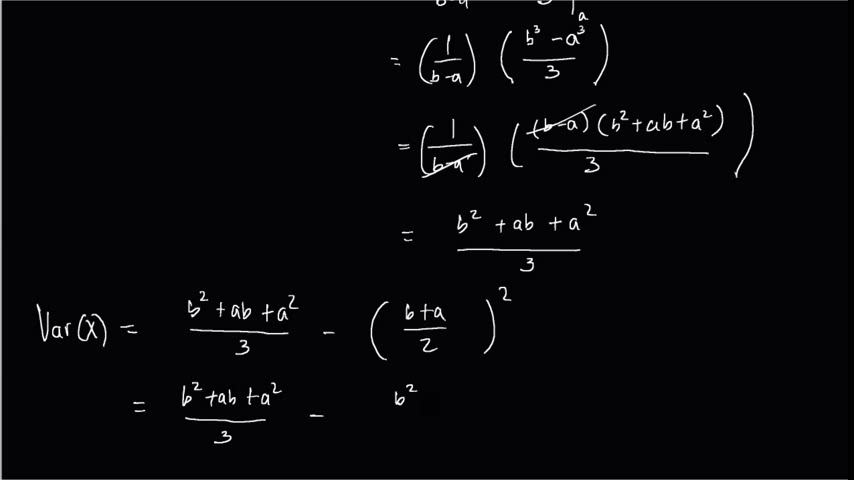 b-a 3 |a
= (1/(b-a)) ((b³ - a³)/3)
= (1/(b-a)) (((b-a)(b² + ab + a²))/3)
= (b² + ab + a²)/3
Var(X) = (b² + ab + a²)/3 - ((b+a)/2)²
= (b² + ab + a²)/3 - b²